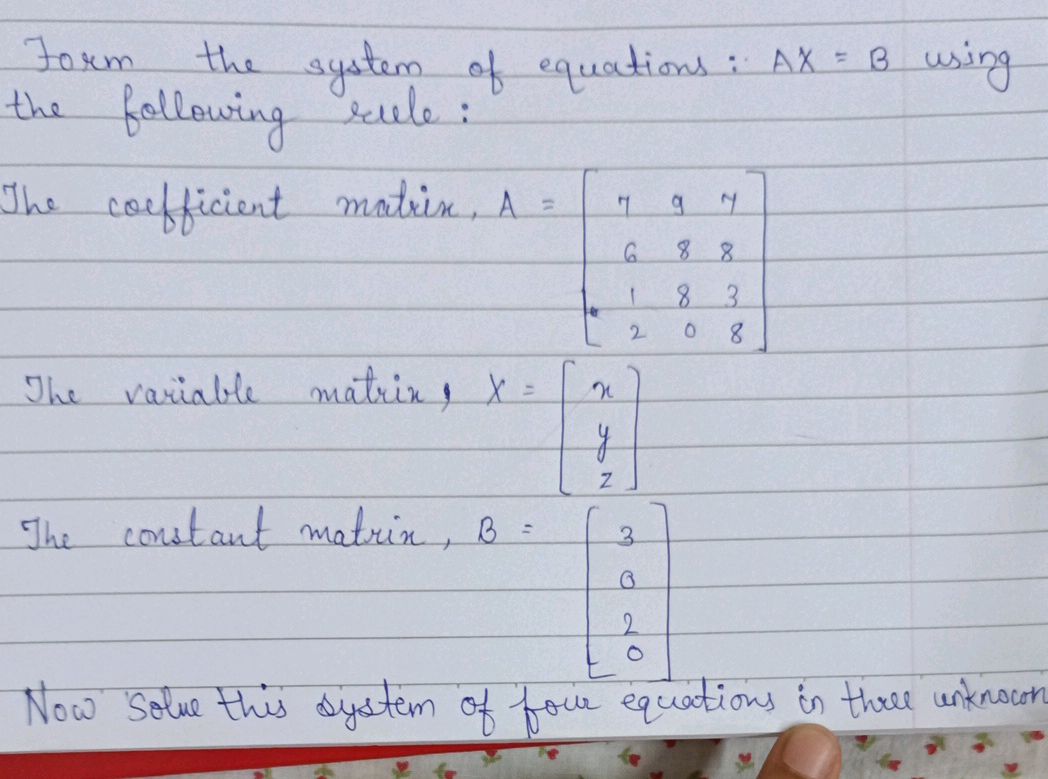 Form the system of equations: AX = B using
the following rule:
The coefficient matrix, A = [ 7 9 7
6 8 8
1 8 3
2 0 8 ]
The variable matrix, X = [ x
y
z ]
The constant matrix, B = [ 3
0
2
0 ]
Now solve this system of four equations in three unknown